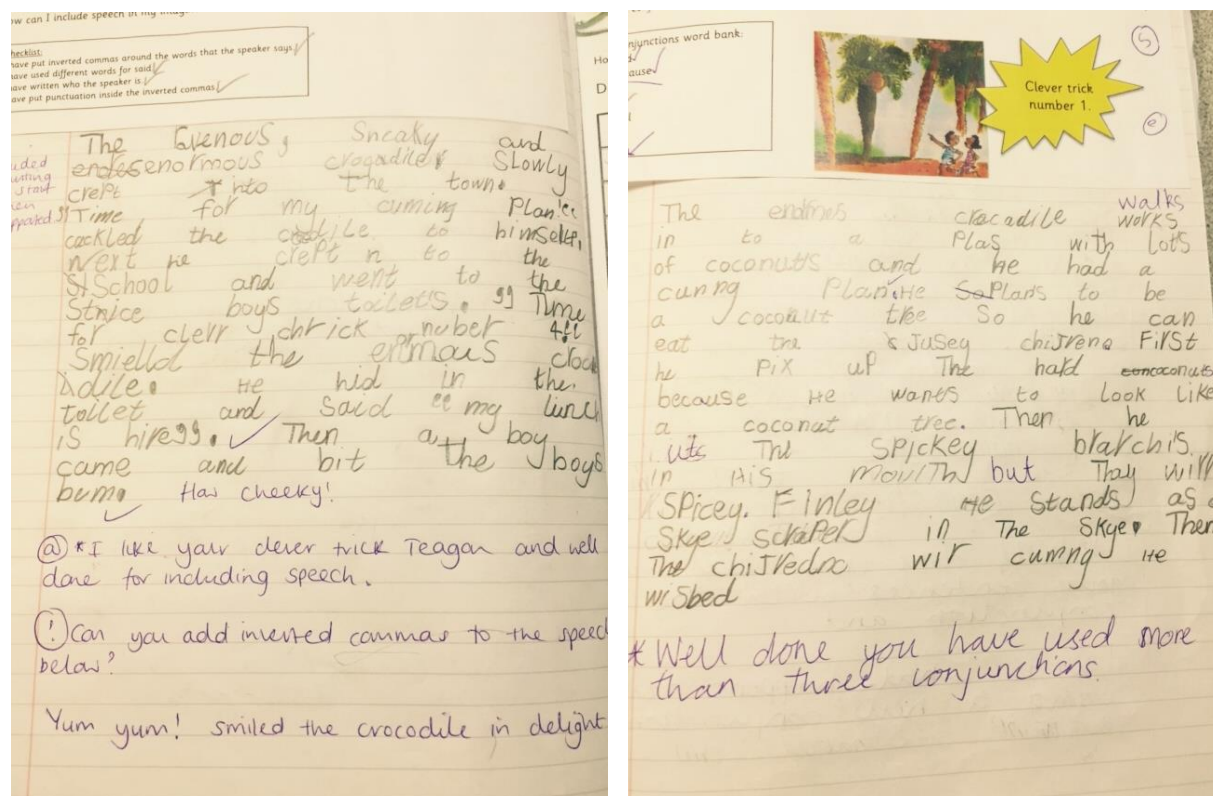 ow can I include speech in my imag
hecklist:
ave put inverted commas around the words that the speaker says.
ave used different words for said
ave written who the speaker is.
ave put punctuation inside the inverted commas
Ho
D
The Evenous, Sneaky and
enormous crocadile, Slowly
crept into the town.
"Time for my cuming Plan"
cackled the to himself,
Next He crept n to the
School and went to the
Strice boys toilets. "Time
for clerr chrick nuber 4"
Smielld the enmous croc
adile. He hid in the
toilet and Said "my lunch
is hire". Then a boy
came and bit the boys
bum. How cheeky!
@ *I like your clever trick Teagan and well
done for including speech.
! Can you add inverted commas to the speech
below?
Yum yum! smiled the crocodile in delight
njunctions word bank:
ause
Clever trick
number 1.
S
e
walks
The crocadile works
in to a Plas with lots
of coconuts and he had a
cunng Plan. He Plans to be
a coconut tree So he can
eat the JuSey chiJrena First
he Pix up The hard coconuts
because He wants to Look Like
a coconut tree. Then he
uts The SPickey brarchis
in His mouth but Thay will
SPicey. Finley He Stands as a
Skye scraper in The Skye. Then
The chiJredno wir cumng He
wisbed
* Well done you have used more
than three conjunctions.